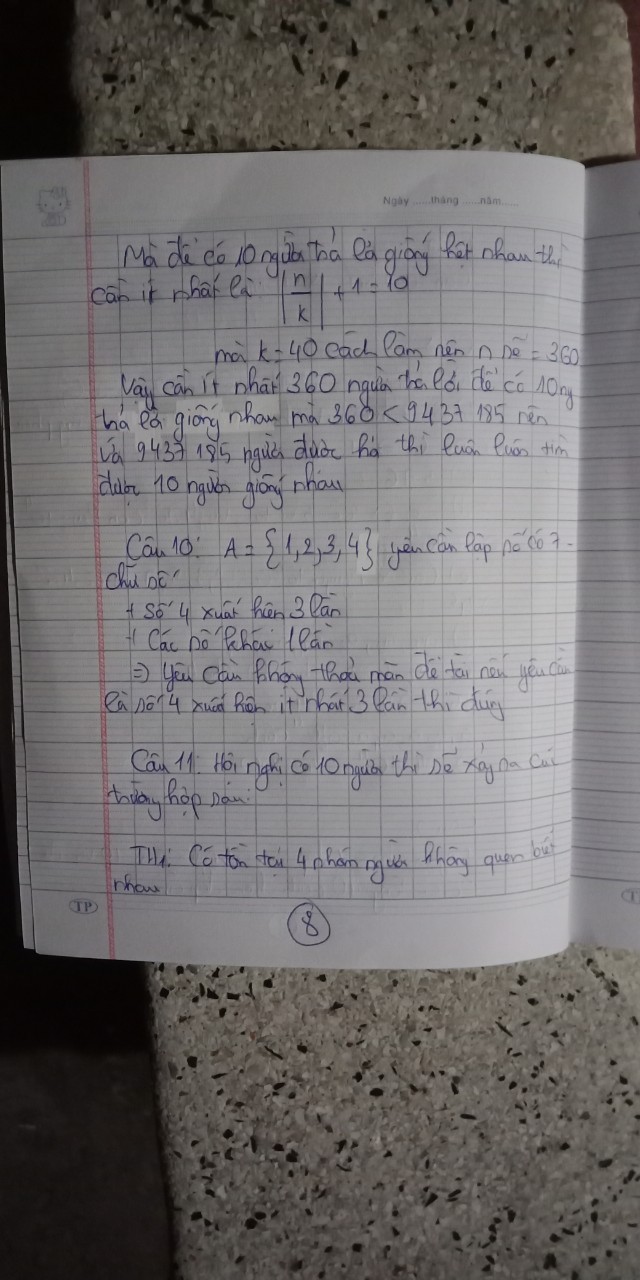 Ngày ......tháng ......năm......
Mà để có 10 người trả lời giống hệt nhau thì
cần ít nhất là |n/k| + 1 = 10
mà k = 40 cách làm nên n sẽ = 360
Vậy cần ít nhất 360 người trả lời để có 10 ng
trả lời giống nhau mà 360 < 9437 185 nên
Với 9437 185 người được hỏi thì luôn luôn tìm
được 10 người giống nhau
Câu 10: A = {1,2,3,4} yêu cầu lập số có 7
chữ số
+ Số 4 xuất hiện 3 lần
+ Các số khác 1 lần
=> yêu cầu không thoả mãn đề tài nếu yêu cầu
là số 4 xuất hiện ít nhất 3 lần thì đúng
Câu 11: Hội nghị có 10 người thì sẽ xảy ra các
trường hợp sau:
TH1: Có tồn tại 4 nhóm người không quen biết
nhau
TP
8